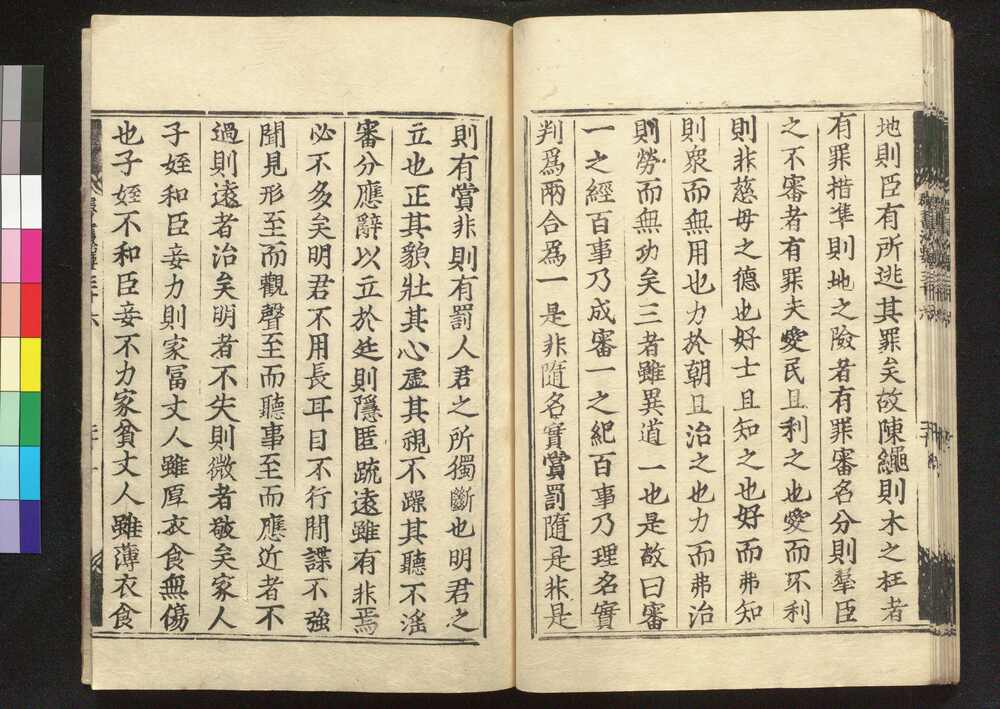 地則臣有所逃其罪矣故陳繩則木之枉者
有罪措準則地之險者有罪審名分則羣臣
之不審者有罪夫愛民且利之也愛而不利
則非慈母之德也好士且知之也好而弗知
則衆而無用也力於朝且治之也力而弗治
則勞而無功矣三者雖異道一也是故曰審
一之經百事乃成審一之紀百事乃理名實
判爲兩合爲一是非隨名實賞罰隨是非是
則有賞非則有罰人君之所獨斷也明君之
立也正其貌壯其心虛其視不躁其聽不淫
審分應辭以立於廷則隱匿疏遠雖有非焉
必不多矣明君不用長耳目不行閒諜不強
聞見形至而觀聲至而聽事至而應近者不
過則遠者治矣明者不失則微者敬矣家人
子姪和臣妾力則家冨丈人雖厚衣食無傷
也子姪不和臣妾不力家貧丈人雖薄衣食